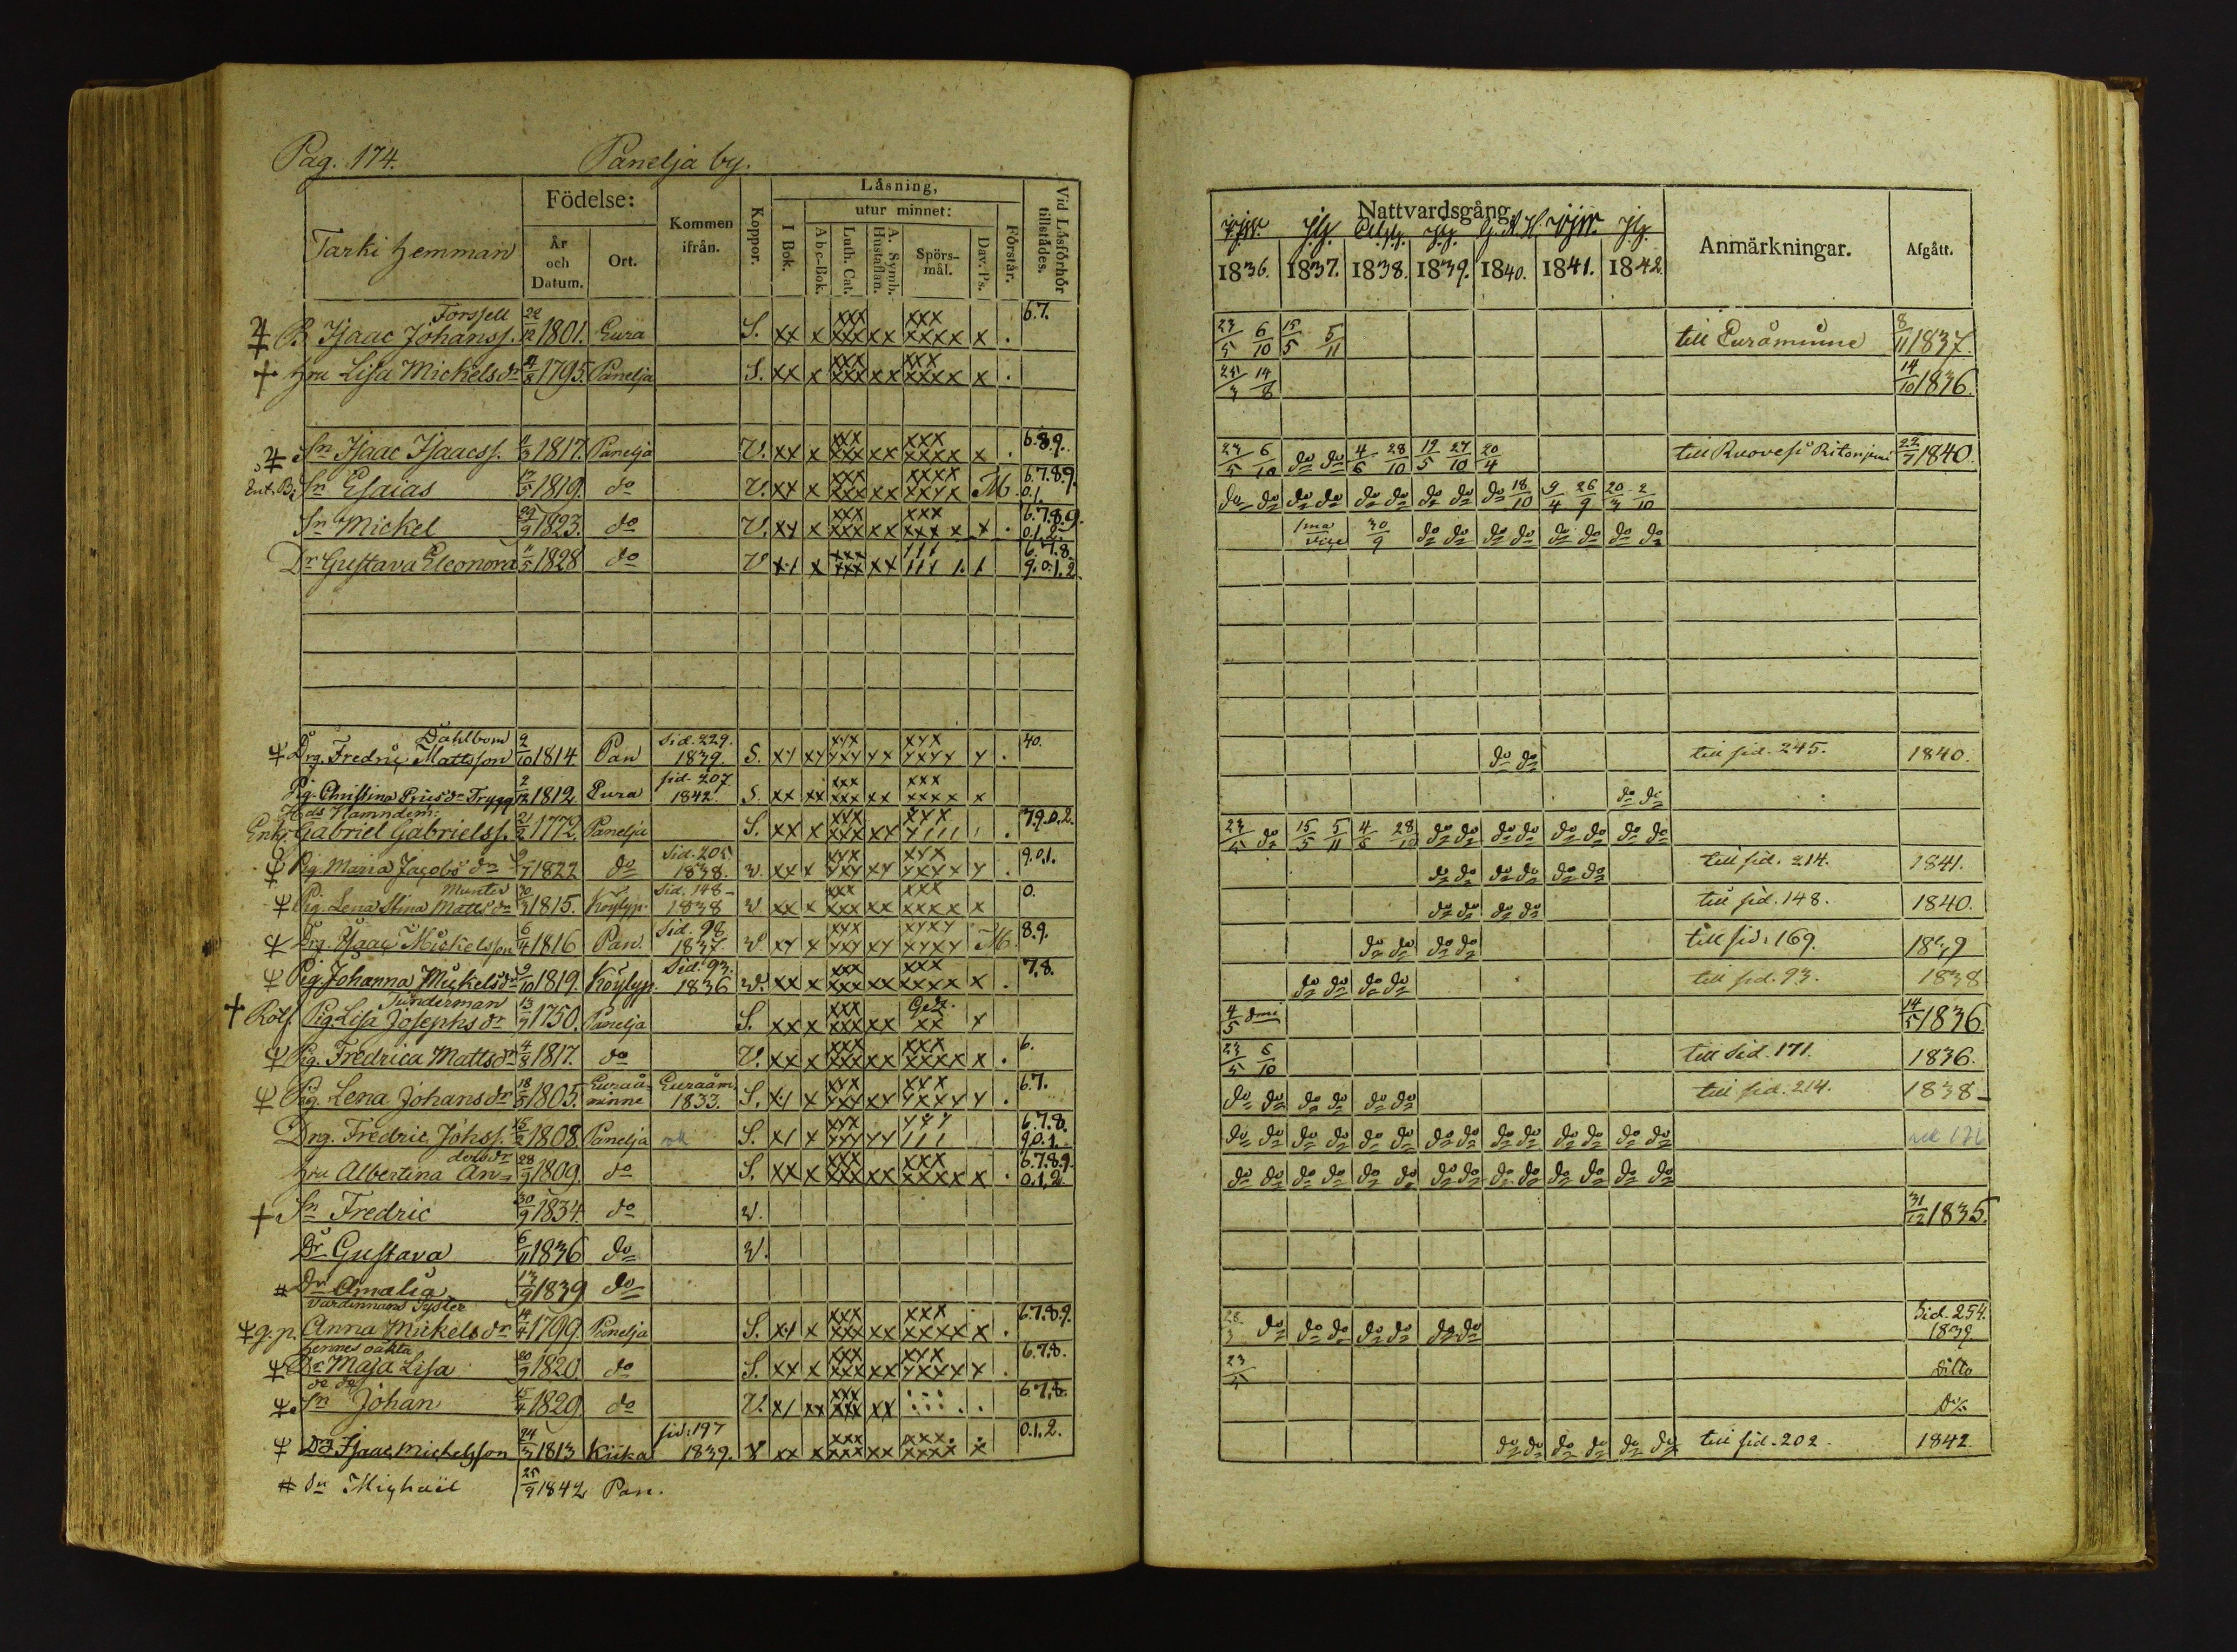 Pag. 174. Panelja by.
Tarki hemman
Födelse:
År och Datum.
Ort.
Kommen ifrån.
Koppor.
Läsning,
I Bok.
utur minnet:
Abc-Bok.
Luth. Cat.
A. Symb. Hustaflan.
Spörsmål.
Dav. Ps.
Förstår.
Vid Läsförhör tillstädes.
Nattvardsgång
1836. 1837. 1838. 1839. 1840. 1841. 1842.
Anmärkningar.
Afgått.
Forssell
B. Isaac Johanss. 22/12 1801. Eura S. xx x xxx xxx xx xxx xxxx x . 6.7. 23/5 6/10 15/5 5/11 till Euråminne 8/11 1837.
hru Lisa Mickelsdr 1795. Panelja S. xx x xxx xxx xx xxx xxxx x . 14/8 14/10 1836.
Sn Isaac Isaacss. 1817. Panelja V. xx x xxx xxx xx xxx xxxx x . 6.8.9. 23/5 6/10 do do 4/6 28/10 19/5 27/10 20/4 till Ruovesi 1840.
Sn Esaias 1819. do V. xx x xxx xxx xx xxxx xxxx M. 6.7.8.9. 0.1. do do do do do do do do do 18/10 9/4 26/9 20/3 2/10
Sn Mickel 29/9 1823. do V. xx x xxx xxx xx xxx xxx x x . 6.7.8.9. 0.1.2. 1ma vice 30/9 do do do do do do do do
Dr Gustava Eleonora 1828 do V x1 x xxx xxx xx 111 111 1. 1 6.7.8. 9.0.1.2.
Dahlbom
Drg. Fredric Mattsson 9/10 1814 Pan Sid. 229. 1839. S. xx xx xxx xxx xx xxx xxxx x . 40. do do till sid. 245. 1840.
Pig. Christina Trygg 2/12 1812. Eura sid. 207. 1842. S. xx xx xxx xxx xx xxx xxxx x do do
Enkl. Gabriel Gabrielss. 21/2 1772. Panelja S. xx x xxx xxx xx xxx x111 1 . 7.9.0.2. 23/5 do 15/5 5/11 4/6 28/10 do do do do do do do do
Pig. Maria Jacobsdr 1822 do Sid. 205. 1838. V. xx x xxx xxx xx xxx xxxx x . 9.0.1. do do do do do do till sid. 214. 1841.
Munter
Pig. Lena Stina Mattsdr 1815. Köylyp. Sid. 148 1838 V xx x xxx xxx xx xxx xxxx x 0. do do do do till sid. 148. 1840.
Drg. Isaac Mickelsson 6/4 1816 Pan. Sid. 98. 1837. V xx x xxx xxx xx xxxx xxxx M. 8.9. do do do do till sid. 169. 1839
Pig. Johanna Mickelsdr 1819. Köylyp. Sid. 93. 1836 V. xx x xxx xxx xx xxx xxxx x . 7.8. do do do do till sid. 93. 1838
Sunderman
Rotf. Pig. Lisa Josephsdr 1750. Panelja S. xx x xxx xxx xx xx x 4/5 dmi 14/5 1836.
Pig. Fredrica Mattsdr 1817. do V. xx x xxx xxx xx xxx xxxx x . 6. 23/5 6/10 till sid. 171. 1836.
Pig. Lena Johansdr 1805. Euraåminne Euraåm. 1833. S. x1 x xxx xxx xx xxx xxxx x . 6.7. do do do do do do till sid. 214. 1838
Drg. Fredric Johss. 1808. Panelja S. x1 x xxx xxx xx 111 6.7.8. 9.0.1. do do do do do do do do do do do do do do
hru Albertina An= dersdr 28/9 1809. do S. xx x xxx xxx xx xxx xxxx x . 6.7.8.9. 0.1.2. do do do do do do do do do do do do do do
Sn Fredric 30/9 1834. do V. 31/12 1835.
Dr Gustava 6/11 1836 do V.
Dr Amalia 13/9 1839 do
Värdinnans Syster
g. p. Anna Mickelsdr 1799. Panelja S. x1 x xxx xxx xx xxx xxxx x . 6.7.8.9. do do do do do do do Sid. 254. 1839.
hennes oäkta
Dr Maja Lisa 20/9 1820. do S. xx x xxx xxx xx xxx xxxx x . 6.7.8. 23/5 ditto
do do
Sn Johan 1829. do V. x1 xx xxx xxx xx 6.7.8.
Isaac Michelsson 24/3 1813 Kiika sid. 197 1839. V xx x xxx xxx xx xxx. xxxx x 0.1.2. do do do do do do till sid. 202. 1842.
Sn Michaël 25/9 1842 Pan.